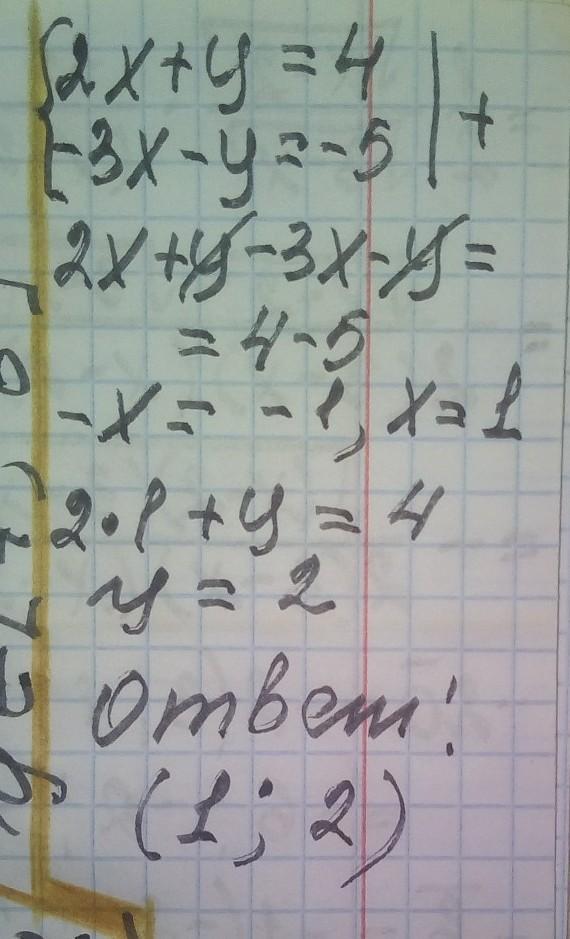 {2x+y=4 | +
{-3x-y=-5 |
2x+y-3x-y=
=4-5
-x=-1, x=1
2·1+y=4
y=2
Ответ:
(1; 2)